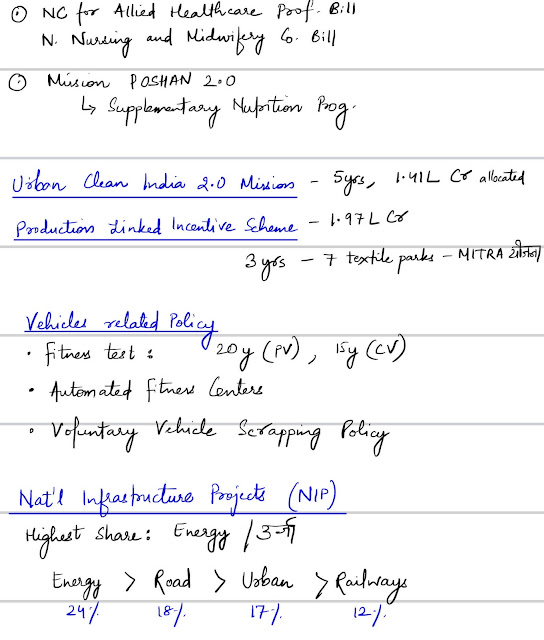 ⊙ NC for Allied Healthcare Prof. Bill
N. Nursing and Midwifery Co. Bill
⊙ Mission POSHAN 2.0
↳ Supplementary Nutrition Prog.
Urban Clean India 2.0 Mission - 5yrs, 1.41L Cr allocated
Production Linked Incentive Scheme - 1.97L Cr
3 yrs - 7 textile parks - MITRA योजना
Vehicles related Policy
• fitness test : 20y (PV), 15y (CV)
• Automated fitness Centers
• Voluntary Vehicle Scrapping Policy
Nat'l Infrastructure Projects (NIP)
Highest Share: Energy / ऊर्जा
Energy > Road > Urban > Railways
24% 18% 17% 12%